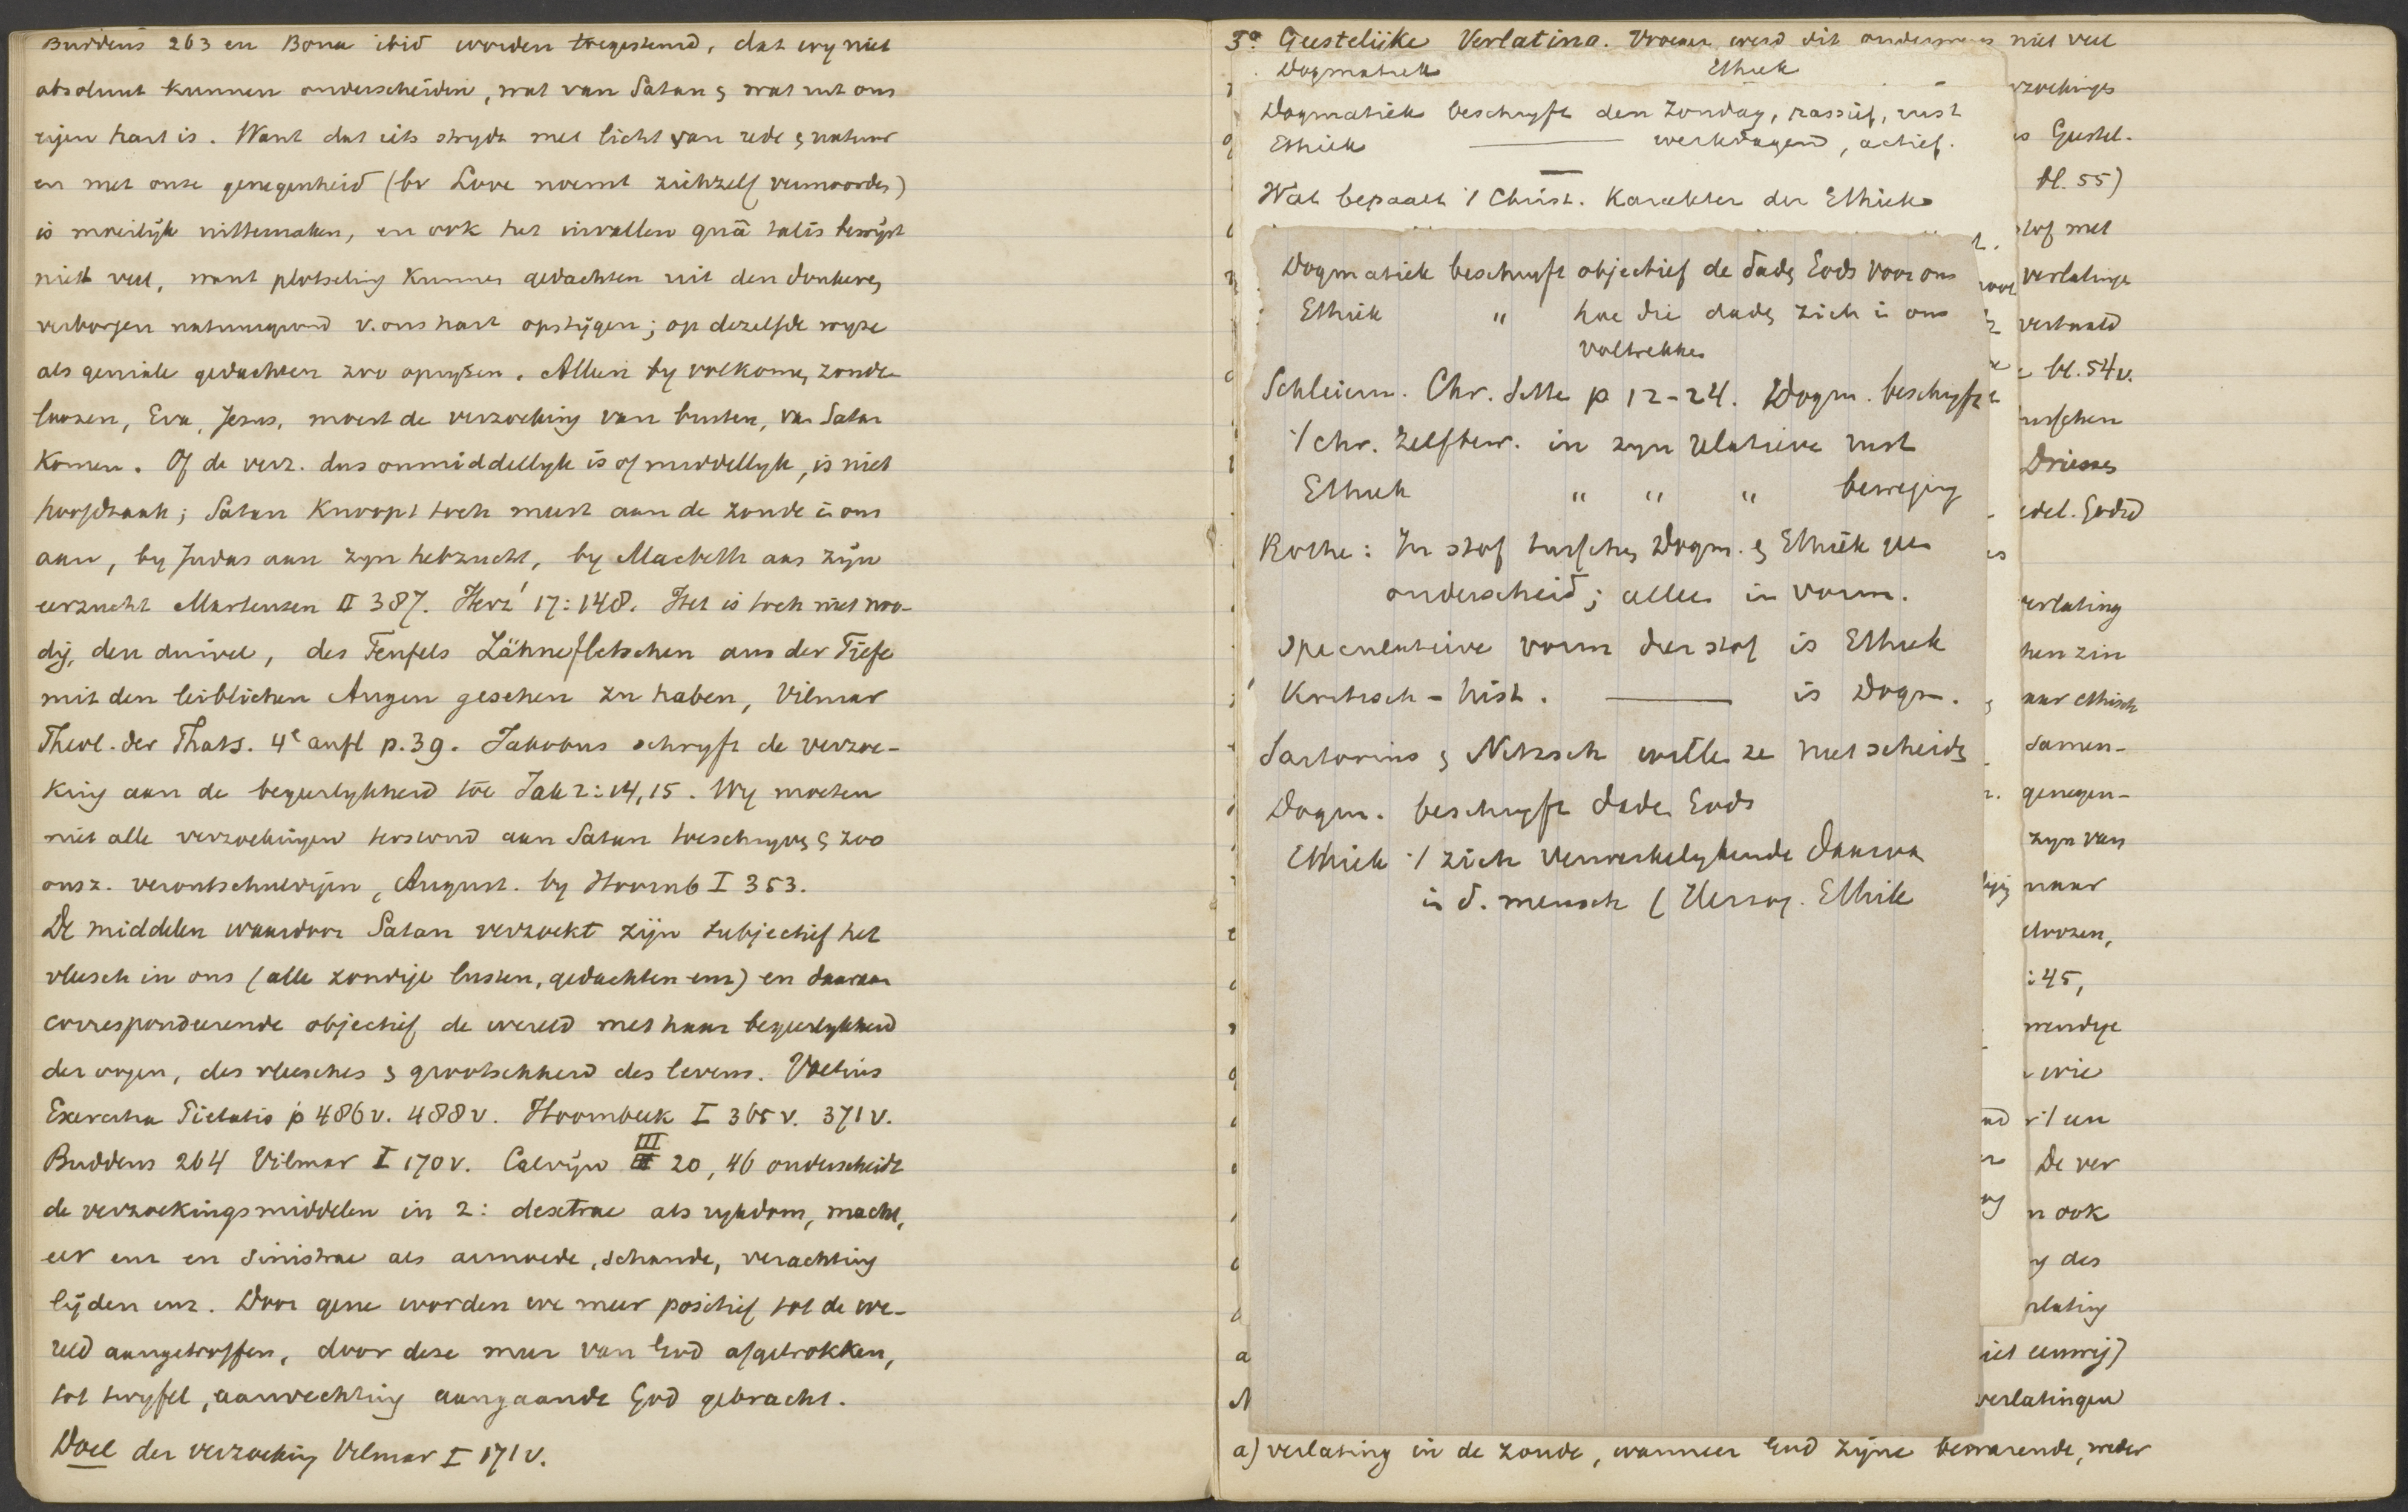 Buddeus 263 en Bona ibid worden toegestemd, dat wy niet
absoluut kunnen onderscheiden, wat van Satan & wat uit ons
eigen hart is. Want dat iets strydt met licht van rede & natuur
en met onze genegenheid (br Love noemt zichzelf vermoorden)
is moeilijk uittemaken, en ook het invallen quâ talis bewijst
niet veel, want plotseling kunnen gedachten uit den donkeren
verborgen natuurgrond v. ons hart opstijgen; op dezelfde wyze
als geniale gedachten zoo opryzen. Alleen by volkomen zonde-
loozen, Eva, Jezus, moest de verzoeking van buiten, van Satan
komen. Of de verz. dus onmiddellyk is of middellyk, is niet
hoofdzaak; Satan knoopt toch meest aan de zonde in ons
aan, by Judas aan zyn hebzucht, by Macbeth aan zijn
eerzucht Martensen II 387. Herz' 17:148. Het is toch niet noo-
dig, den duivel, des Teufels Zähnefletschen aus der Tiefe
mit den leiblichen Augen gesehen zu haben, Vilmar
Theol. der Thats. 4e aufl p. 39. Jakobus schryft de verzoe-
king aan de begeerlykheid toe Jak 1:14, 15. Wy moeten
niet alle verzoekingen terstond aan Satan toeschryven & zoo
ons z. verontschuldigen, August. by Hoornb I 353.
De middelen waardoor Satan verzoekt zijn subjectief het
vleesch in ons (alle zondige lusten, gedachten enz) en daaraan
correspondeerende objectief de wereld met haar begeerlykheid
der oogen, des vleesches & grootschheid des levens. Voetius
Exercitia Pietatis p 486v. 488v. Hoornbeek I 365v. 371v.
Buddeus 264 Vilmar I 170v. Calvijn III 20, 46 onderscheidt
de verzoekingsmiddelen in 2: dextrae als rykdom, macht,
eer enz en sinistrae als armoede, schande, verachting
lijden enz. Door gene worden we meer positief tot de we-
reld aangetroffen, door deze meer van God afgetrokken,
tot twyfel, aanvechting aangaande God gebracht.
Doel der verzoeking Vilmar I 171v.
3o Geestelijke Verlating. Vroeger werd dit onderwerp niet veel
Dogmatiek Ethiek
Dogmatiek beschryft den Zondag, passief, rust
Ethiek ——— werkdagen, actief.
Wat bepaalt 't Christ. karakter der Ethiek
Dogmatiek beschryft objectief de daden Gods voor ons
Ethiek " hoe die daden zich in ons
voltrekken
Schleierm. Chr. Sitte p 12-24. Dogm. beschryft
't chr. zelfbew. in zyn relatieve rust
Ethiek " " " beweging
Rothe: In stof tusschen Dogm. & Ethiek geen
onderscheid; alleen in vorm.
Speculatieve vorm der stof is Ethiek
Kritisch-hist. ——— is Dogm.
Sartorius & Nitzsch willen ze niet scheiden
Dogm. beschryft daden Gods
Ethiek 't zich verwerkelykende daarvan
in d. mensch (Herzog. Ethik
verzoekingen
is Geestel.
bl. 55)
stof met
verlatinge
vertaald
bl. 54v.
tusschen
Driessen
edel. Godvd
verlating
hen zin
aar ethisch
Samen-
genegen-
zyn van
naar
:45,
wendige
wie
r 't een
De ver
n ook
g des
rlating
niet eenwij)
verlatingen
a) verlating in de zonde, wanneer God zijne bewarende, weder